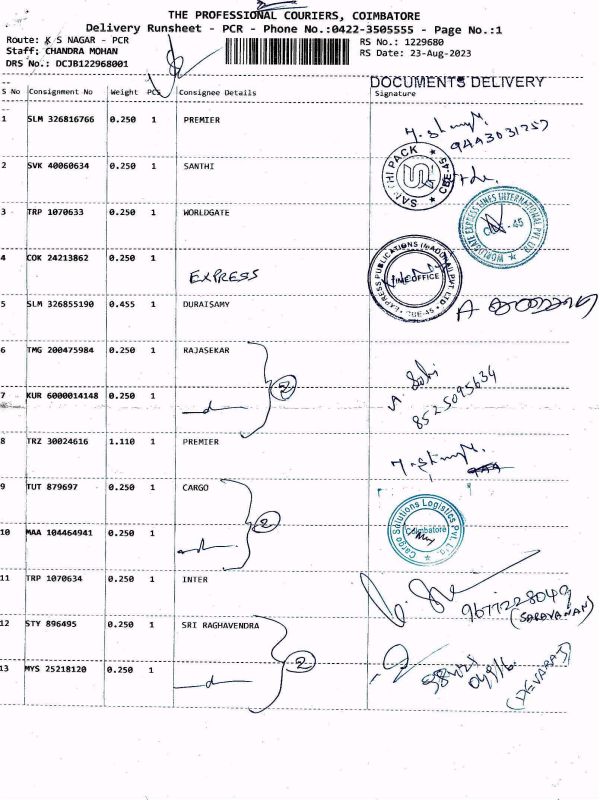 THE PROFESSIONAL COURIERS, COIMBATORE
Delivery Runsheet - PCR - Phone No.:0422-3505555 - Page No.:1
Route: K S NAGAR - PCR RS No.: 1229680
Staff: CHANDRA MOHAN RS Date: 23-Aug-2023
DRS No.: DCJB122968001
DOCUMENTS DELIVERY
S No Consignment No Weight PCS Consignee Details Signature
1 SLM 326816766 0.250 1 PREMIER
2 SVK 40060634 0.250 1 SANTHI
SANCHI PACK ★ CBE-45 ★
3 TRP 1070633 0.250 1 WORLDGATE
WORLDGATE EXPRESS LINES INTERNATIONAL PVT. LTD ★ CBE-45
4 COK 24213862 0.250 1
EXPRESS
EXPRESS PUBLICATIONS (MADURAI) PVT. LTD. TIME OFFICE ★ CBE-45 ★
5 SLM 326855190 0.455 1 DURAISAMY
6 TMG 200475984 0.250 1 RAJASEKAR
2
8525095634
7 KUR 6000014148 0.250 1
8 TRZ 30024616 1.110 1 PREMIER
9 TUT 879697 0.250 1 CARGO
2
Cargo Solutions Logistics Pvt. Ltd. Coimbatore
10 MAA 104464941 0.250 1
11 TRP 1070634 0.250 1 INTER
9677228049
(SARAVANAN)
12 STY 896495 0.250 1 SRI RAGHAVENDRA
2
13 MYS 25218120 0.250 1
(DEVARAJ)